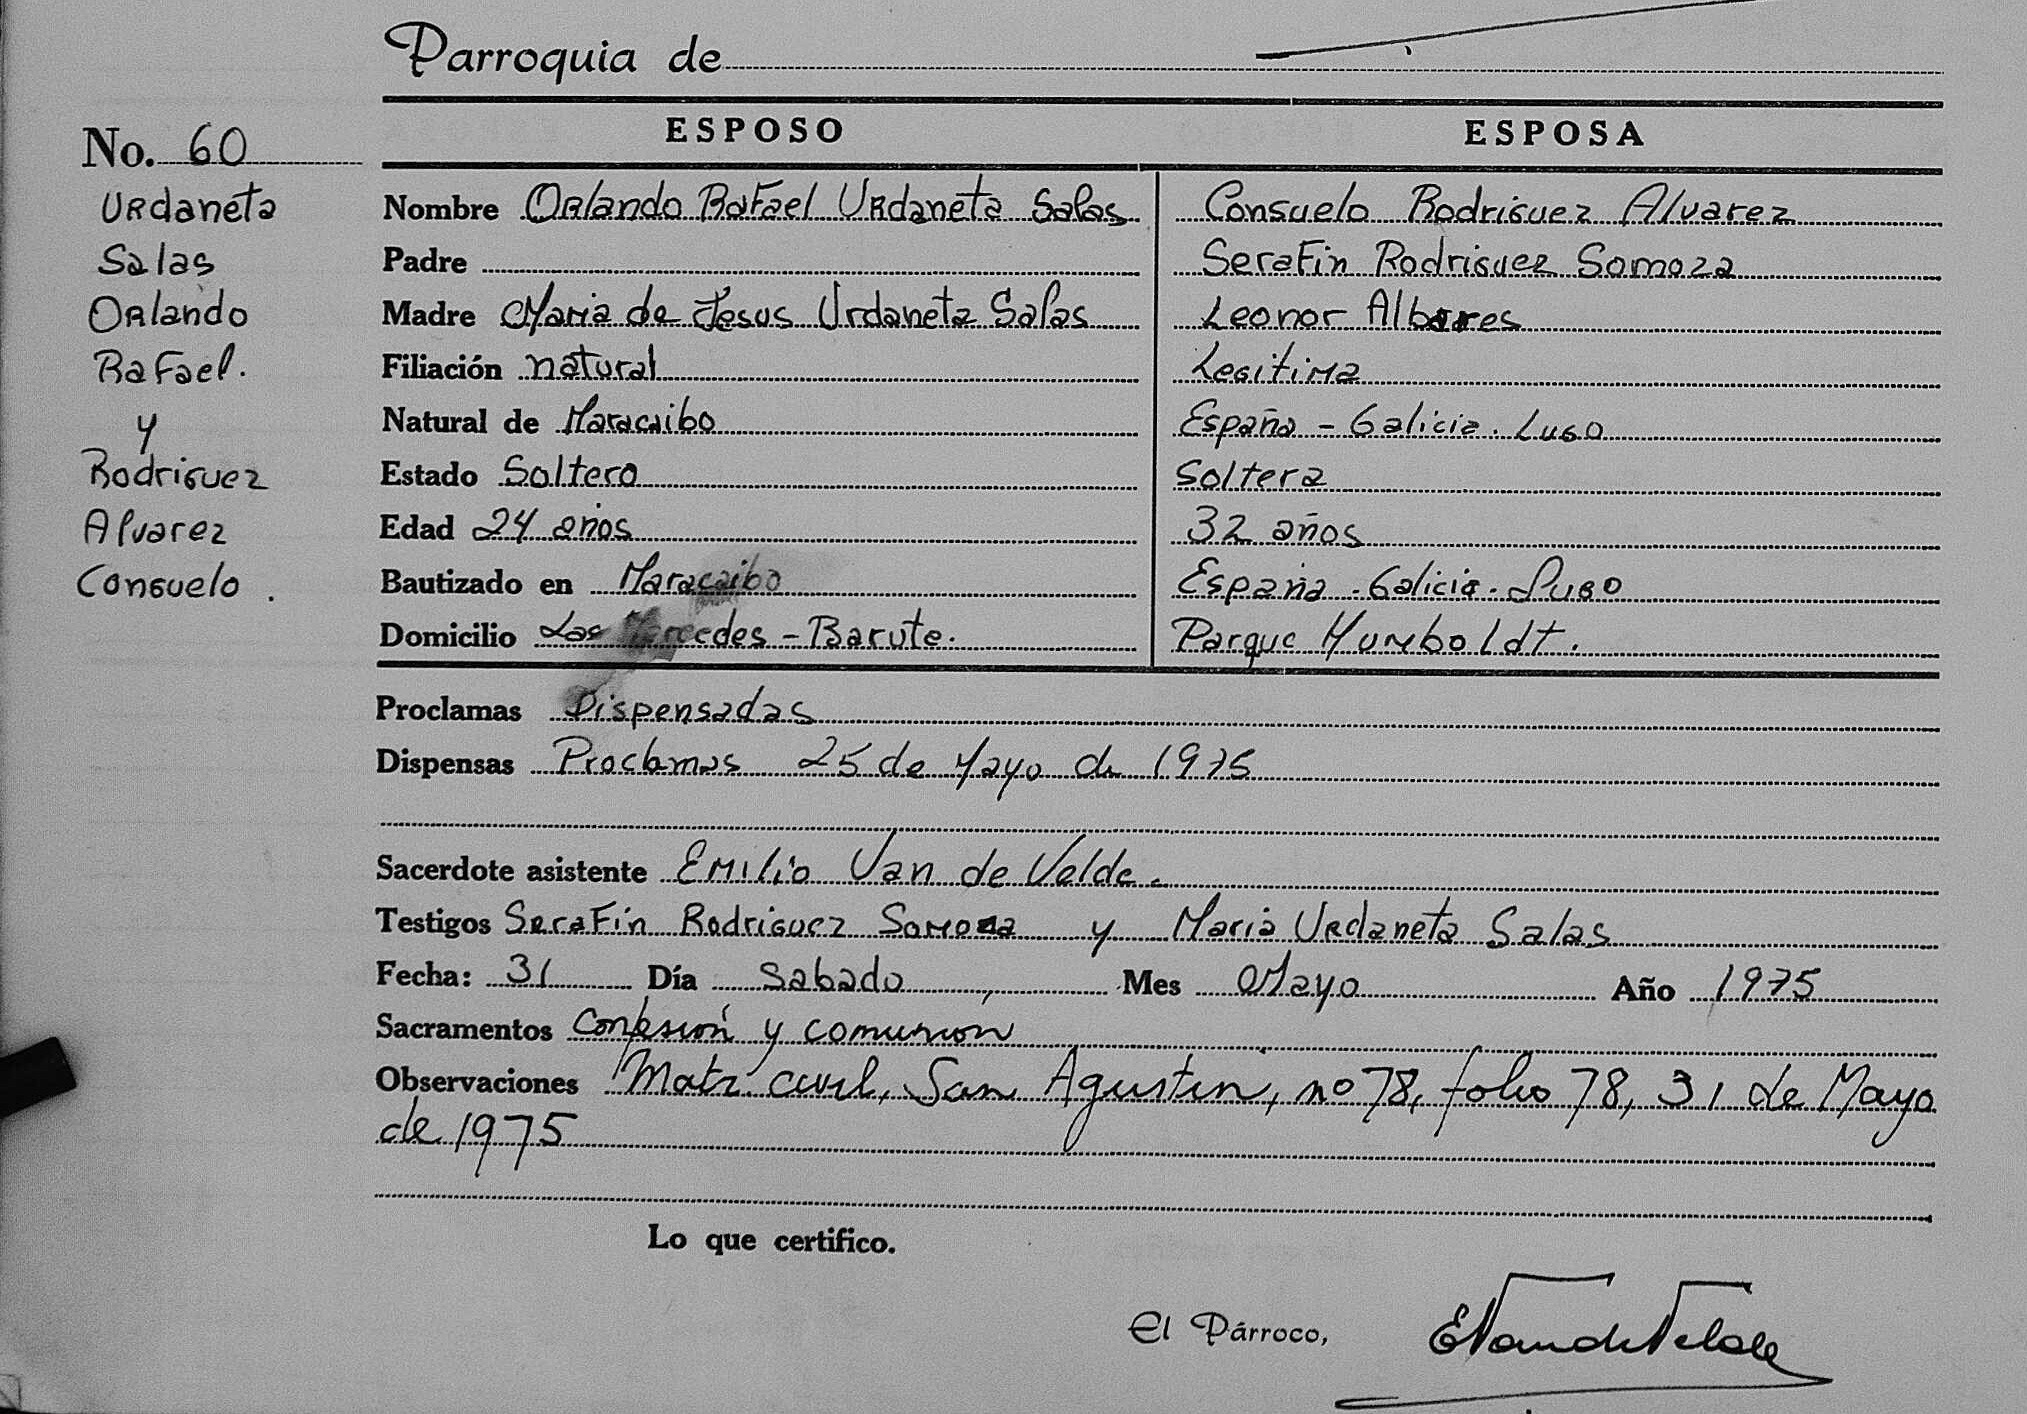 Parroquia de
ESPOSO ESPOSA
No. 60
Urdaneta
Salas
Orlando
Rafael.
y
Rodriguez
Alvarez
Consuelo.
Nombre Orlando Rafael Urdaneta Salas Consuelo Rodriguez Alvarez
Padre Serafin Rodriguez Somoza
Madre Maria de Jesus Urdaneta Salas Leonor Albares
Filiación natural Legitima
Natural de Maracaibo España - Galicia. Lugo
Estado Soltero Soltera
Edad 24 años 32 años
Bautizado en Maracaibo España - Galicia. Lugo
Domicilio Las Mercedes - Barute. Parque Humboldt.
Proclamas Dispensadas
Dispensas Proclamas 25 de Mayo de 1975
Sacerdote asistente Emilio Van de Velde.
Testigos Serafín Rodriguez Somoza y Maria Urdaneta Salas
Fecha: 31 Día Sabado, Mes Mayo Año 1975
Sacramentos Confesión y comunion
Observaciones Matr. civil, San Agustin, no 78, folio 78, 31 de Mayo
de 1975
Lo que certifico.
El Párroco, EVandeVelde